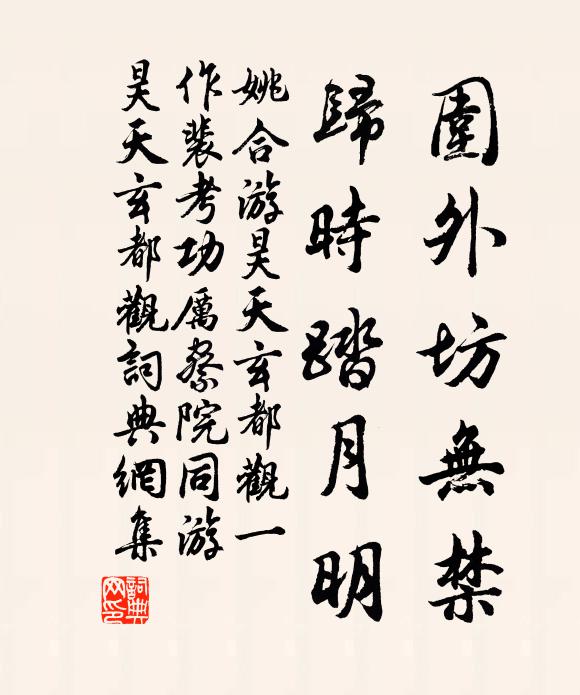 園外坊無禁
歸時踏月明
姚合游昊天玄都觀一
作裴考功厲察院同游
昊天玄都觀詞典網集
詞典
网印